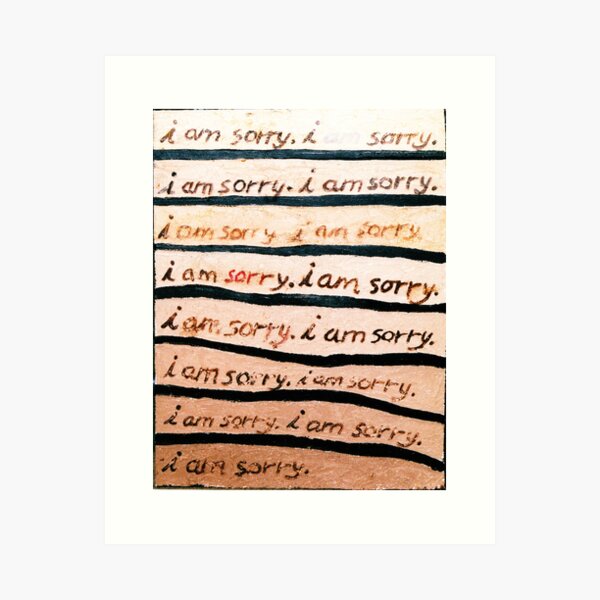 i am sorry. i am sorry.
i am sorry. i am sorry.
i am sorry i am sorry.
i am sorry. i am sorry.
i am sorry. i am sorry.
i am sorry. i am sorry.
i am sorry. i am sorry.
i am sorry.